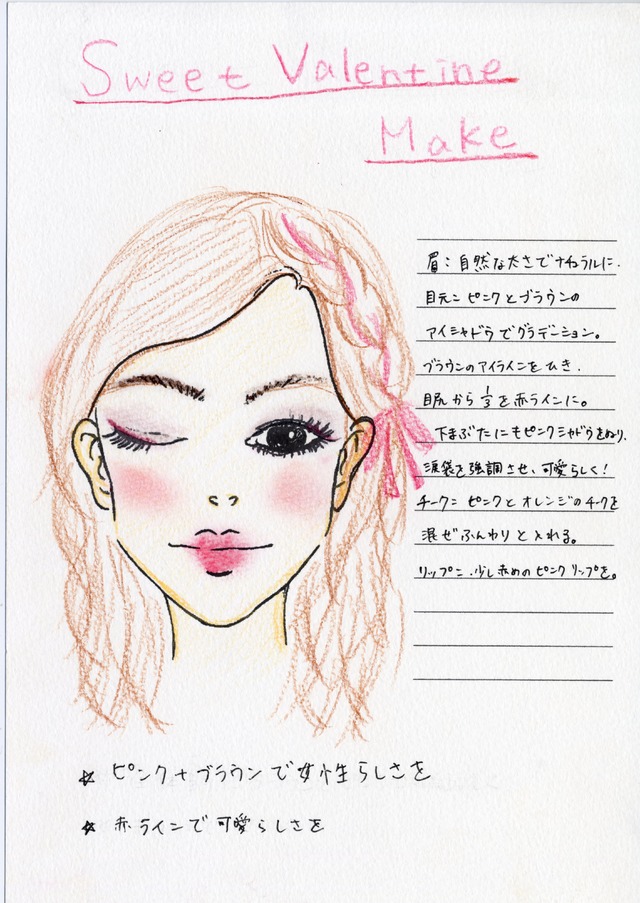 Sweet Valentine
Make
眉：自然な太さでナチュラルに.
目元＝ピンクとブラウンの
アイシャドウでグラデーション。
ブラウンのアイラインをひき.
目尻から 1/3 を赤ラインに。
下まぶたにもピンクシャドウをぬり.
涙袋を強調させ、可愛らしく!
チーク＝ピンクとオレンジのチークを
混ぜふんわりと入れる。
リップ＝.少し赤めのピンクリップを。
☆ ピンク+ブラウンで女性らしさを
☆ 赤ラインで可愛らしさを